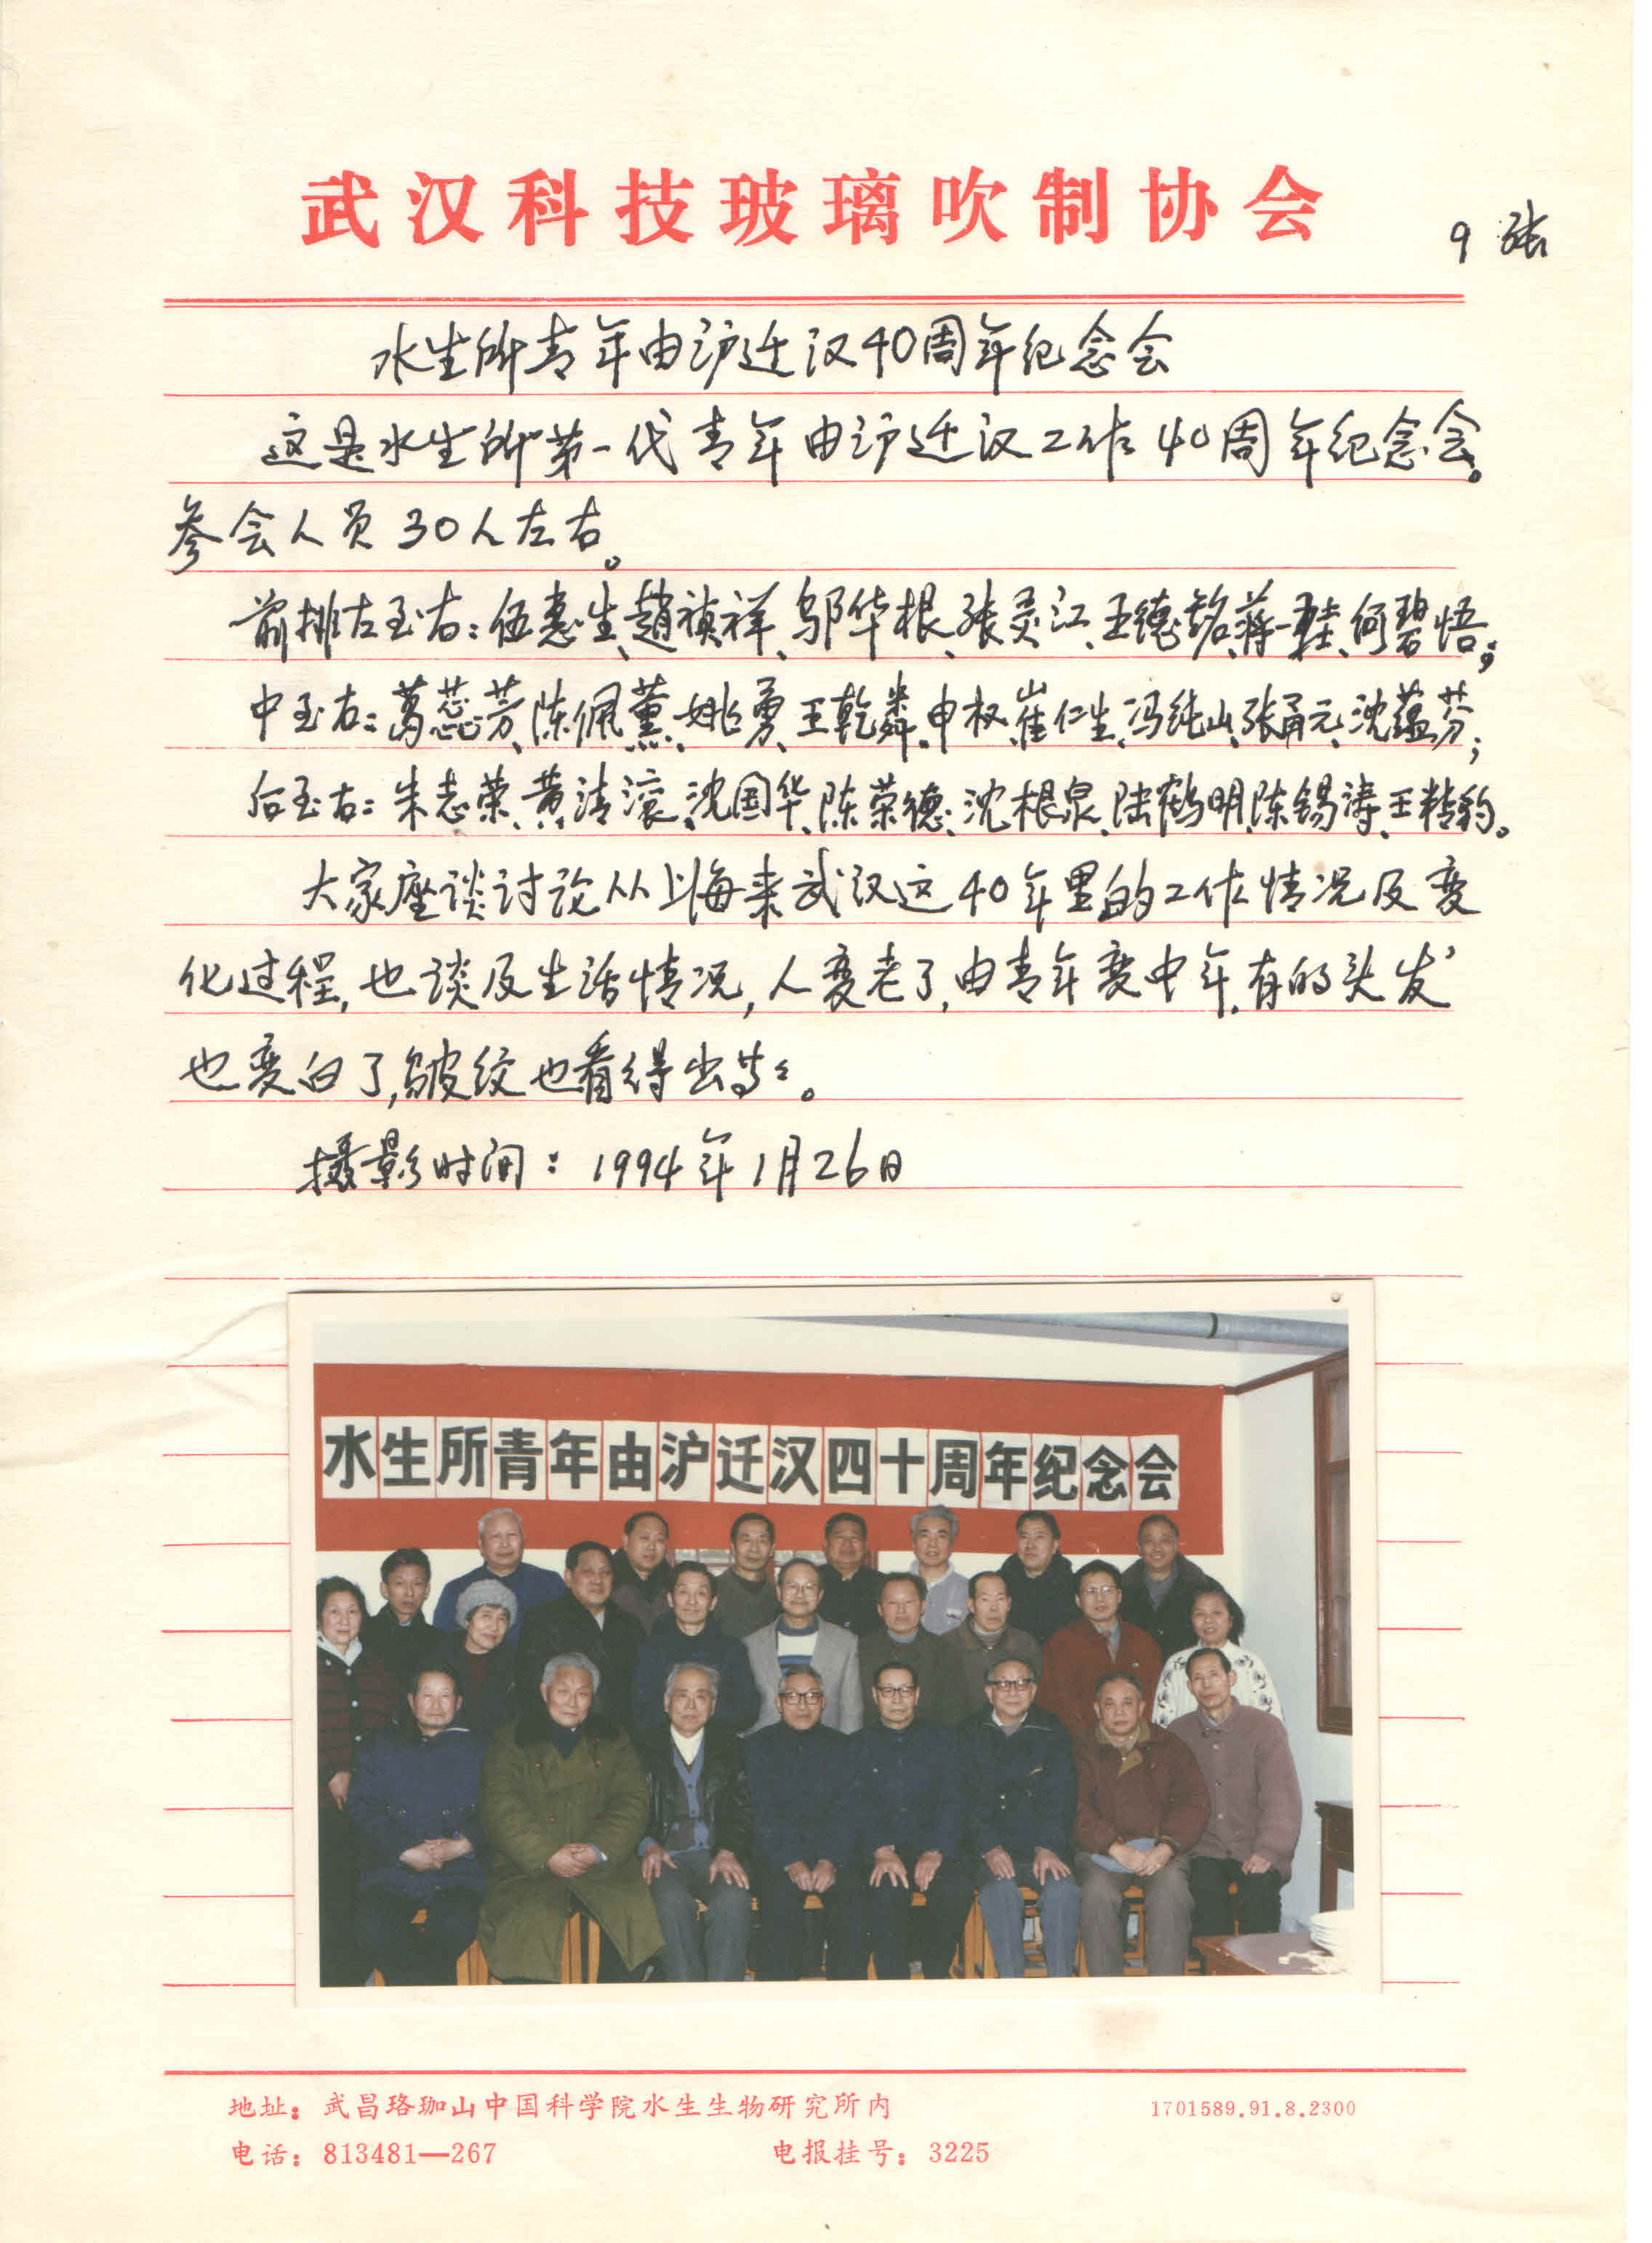 武汉科技玻璃吹制协会
9张
水生所青年由沪迁汉40周年纪念会
这是水生所第一代青年由沪迁汉工作40周年纪念会。
参会人员30人左右。
前排左至右:伍惠生、趙禎祥、邬华根、张灵江、王德铭、蒋一珪、何碧梧;
中至右:葛蕊芳、陈佩薰、姚勇、王乾麟、申权、崔仁生、冯纯山、张甬元、沈蕴芬;
后至右:朱志荣、黄清滚、沈国华、陈荣德、沈根泉、陆鹤明、陈锡涛、王精豹。
大家座谈讨论从上海来武汉这40年里的工作情况及变
化过程,也谈及生活情况,人变老了,由青年变中年,有的头发
也变白了,皱纹也看得出等等。
摄影时间:1994年1月26日
水生所青年由沪迁汉四十周年纪念会
地址:武昌珞珈山中国科学院水生生物研究所内 1701589.91.8.2300
电话:813481—267 电报挂号:3225